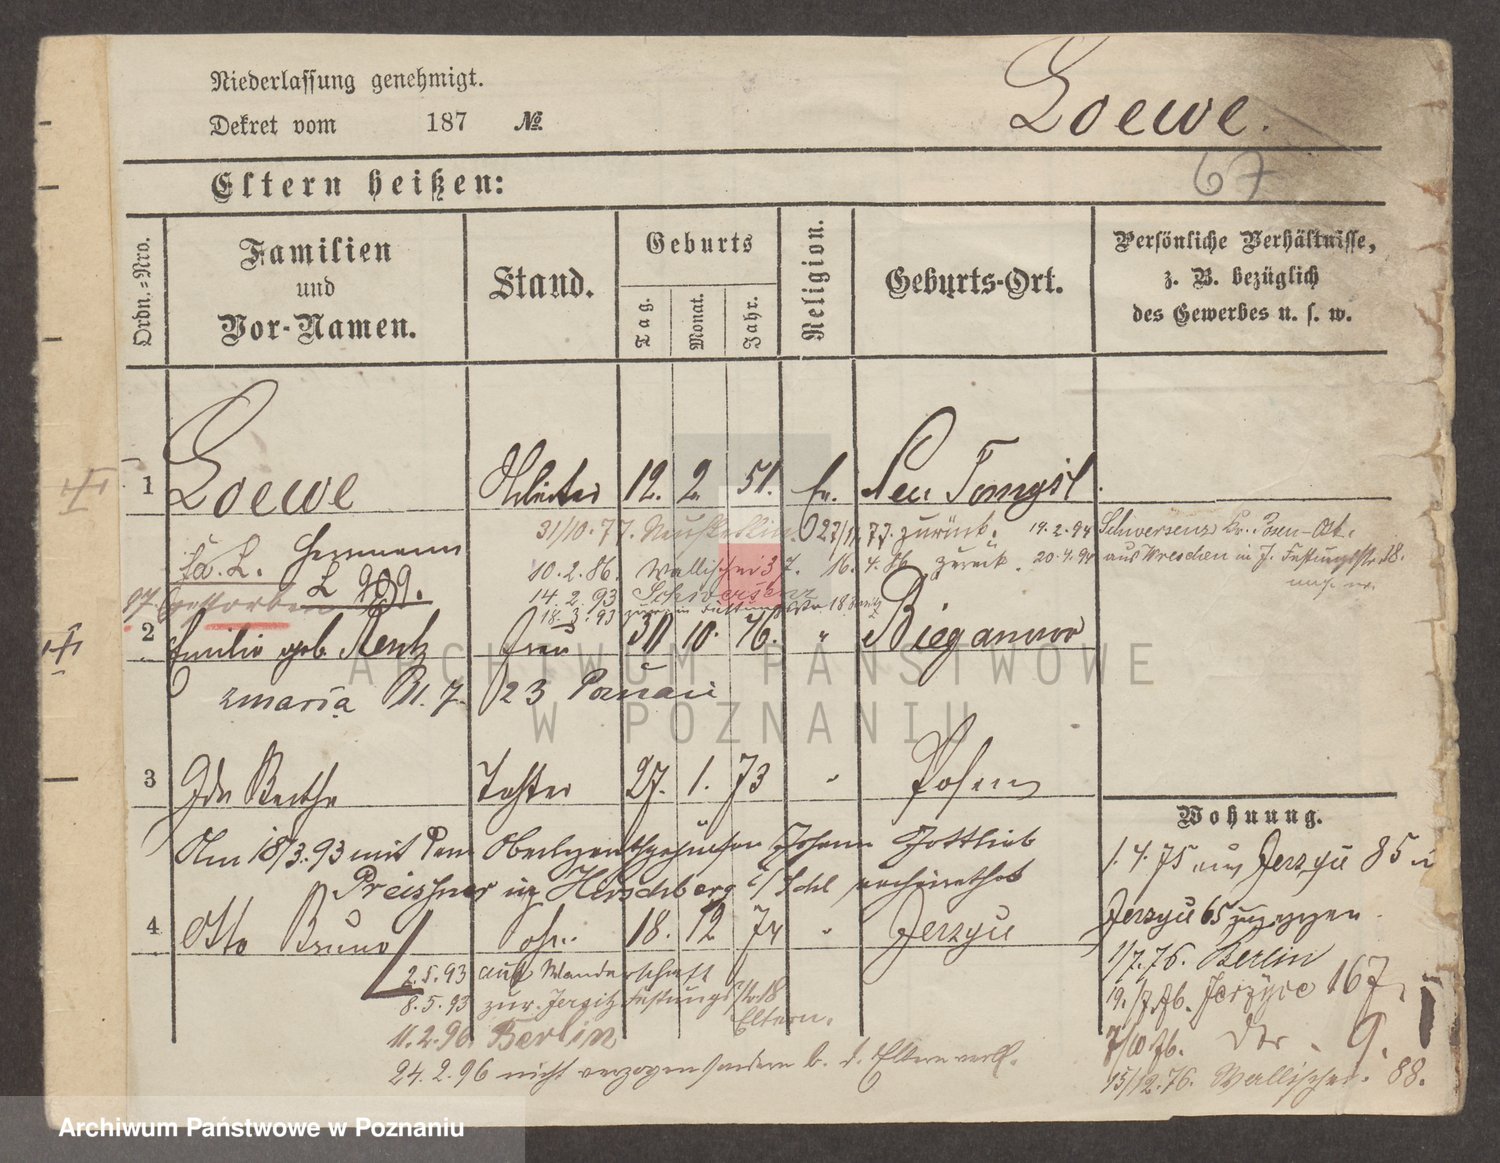 Niederlassung genehmigt.
Dekret vom 187 №
Loewe.
67
Eltern heißen:
Ordn.-Nro.
Familien
und
Vor-Namen.
Stand.
Geburts
Tag.
Monat.
Jahr.
Religion.
Geburts-Ort.
Persönliche Verhältnisse,
z. B. bezüglich
des Gewerbes u. s. w.
1 Loewe 12. 2. 51. Neu Tomysl
Hermann
31/10. 77. zurück. 19. 2. 94 Schwersenz Kr. Posen-Ost.
10. 2. 86. Wallischei 37. 16. 4. 86 zurück. 20. 4. 94 aus Wreschen in J. Festungsstr. 18.
fa. L.
L 909.
14. 2. 93 Schwersenz
Gestorben
18. 3. 93
2 Emilie geb. Rentz Frau 30 10. 46. " Bieganowo
zmaria 11. 7. 23 Poznań
3 Ida Bertha Tochter 27. 1. 73 " Posen
Am 18/3. 93 mit dem Johann Gottlieb
Preissner in Hirschberg i/Schl
4 Otto Bruno Sohn 18. 12 74 " Jerzyce
2. 5. 93 auf Wanderschaft
8. 5. 93 zur. Jersitz Festungsstr 18
Eltern.
11. 2. 96. Berlin
24. 2. 96 nicht verzogen sondern b. d. Eltern verbl.
Wohnung.
1. 4. 75 aus Jerzyce 85
Jerzyce 65 zugezogen.
1/7. 76. Berlin
19. /7. 76. Jerzyce 167,
7/10 76. 9.
15/12. 76. Wallischei. 88.
ARCHIWUM PAŃSTWOWE
W POZNANIU
Archiwum Państwowe w Poznaniu